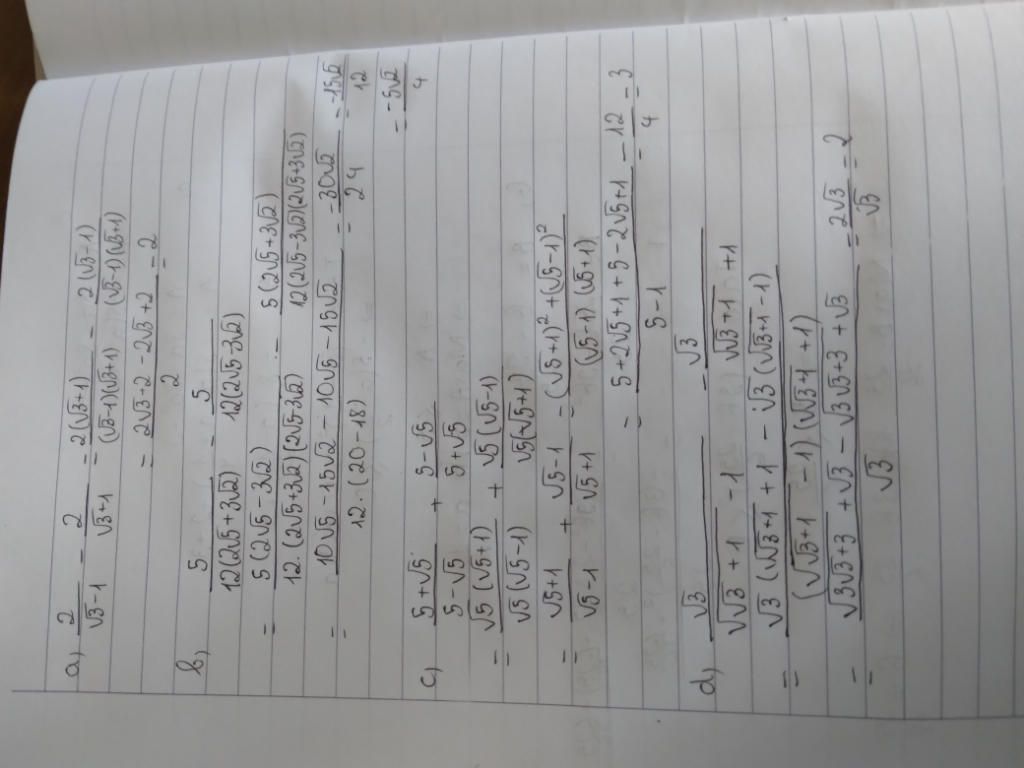 a) 2/(√3-1) - 2/(√3+1) = 2(√3+1)/((√3-1)(√3+1)) - 2(√3-1)/((√3-1)(√3+1))
= (2√3+2-2√3+2)/2 = 2
b) 5/(12(2√5+3√2)) - 5/(12(2√5-3√2))
= 5(2√5-3√2)/(12.(2√5+3√2)(2√5-3√2)) - 5(2√5+3√2)/(12(2√5-3√2)(2√5+3√2))
= (10√5-15√2-10√5-15√2)/(12.(20-18)) = -30√2/24 = -15√2/12
= -5√2/4
c) (5+√5)/(5-√5) + (5-√5)/(5+√5)
= √5(√5+1)/(√5(√5-1)) + √5(√5-1)/(√5(√5+1))
= (√5+1)/(√5-1) + (√5-1)/(√5+1) = ((√5+1)²+(√5-1)²)/((√5-1)(√5+1))
= (5+2√5+1+5-2√5+1)/(5-1) = 12/4 = 3
d) √3/(√(√3+1)-1) - √3/(√(√3+1)+1)
= (√3(√(√3+1)+1) - √3(√(√3+1)-1))/((√(√3+1)-1)(√(√3+1)+1))
= (√(3√3+3)+√3-√(3√3+3)+√3)/√3 = 2√3/√3 = 2